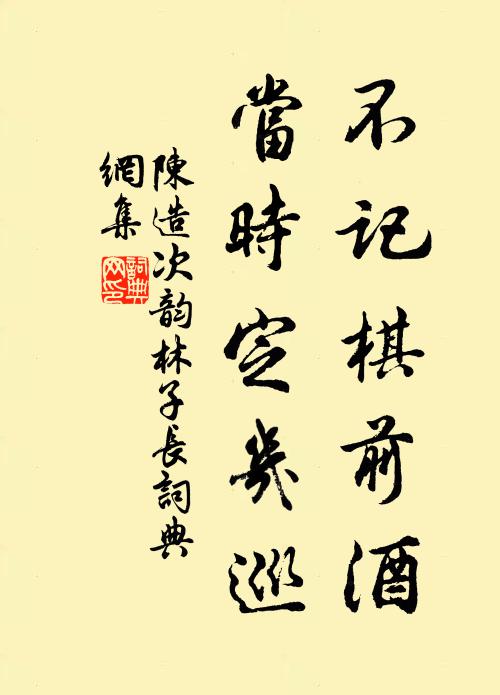 不記棋前酒
當時定幾巡
陳造次韵林子長詞典
網集
詞典網印